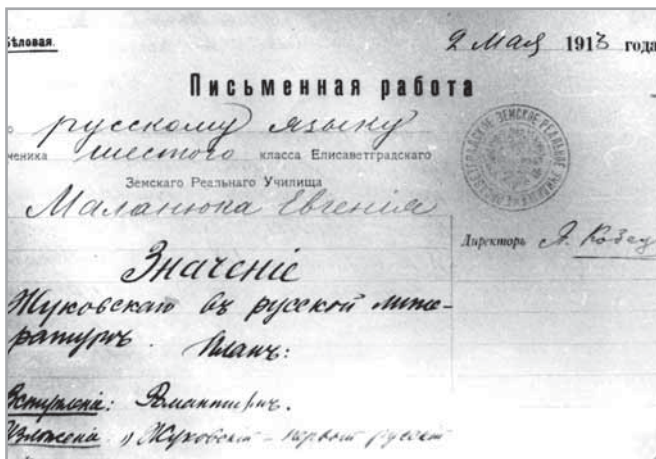 Бѣловая.
2 Мая 1913 года
Письменная работа
по русскому языку
ученика шестого класса Елисаветградскаго
Земскаго Реальнаго Училища
Маланюка Евгенія
ЗЕМСКОЕ РЕАЛЬНОЕ
Директоръ
Значеніе
Жуковскаго въ русской лите-
ратурѣ. Планъ:
Вступленіе: Романтизмъ.
Изложеніе: 1) Жуковскій – первый русскій